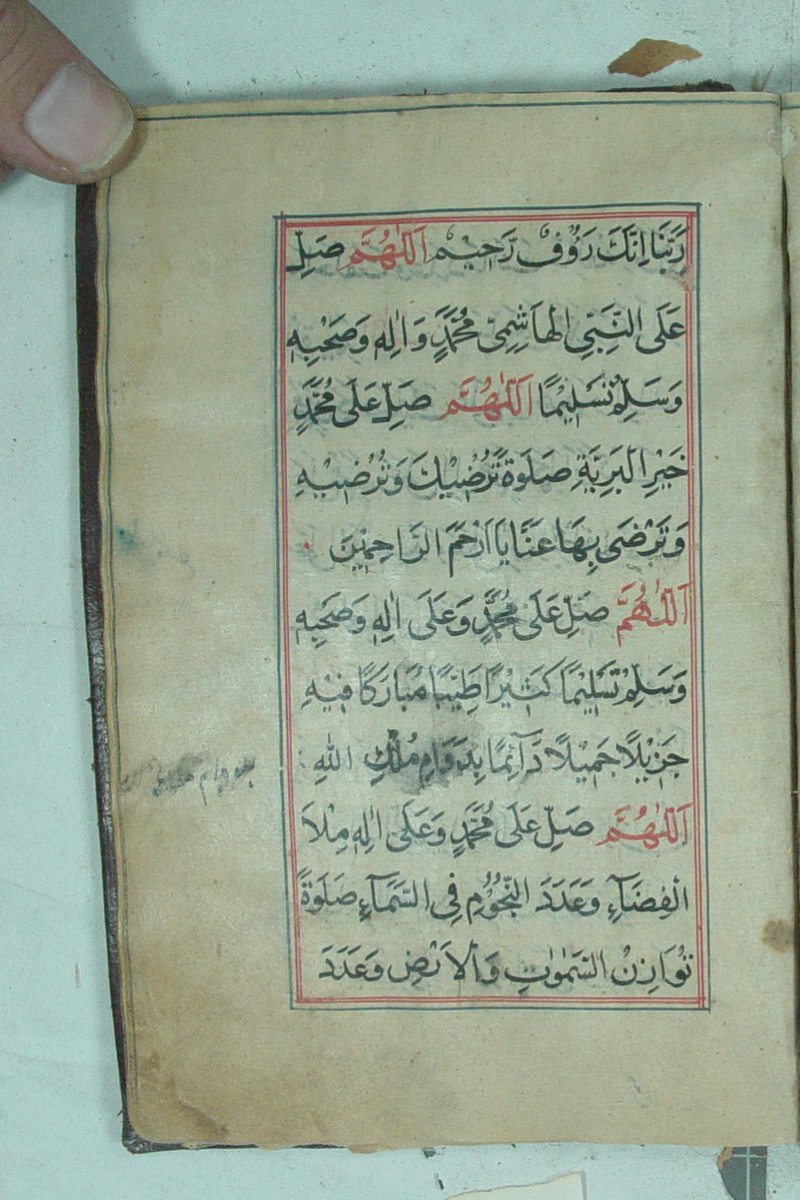 رَبَّنَا اِنَّكَ رَؤُفٌ رَّحِيْمٌ اَللّٰهُمَّ صَلِّ
عَلَى النَّبِيِّ الْهَاشِمِيِّ مُحَمَّدٍ وَاٰلِهٖ وَصَحْبِهٖ
وَسَلِّمْ تَسْلِيْمًا اَللّٰهُمَّ صَلِّ عَلَى مُحَمَّدٍ
خَيْرِ الْبَرِيَّةِ صَلٰوةً تُرْضِيْكَ وَتُرْضِيْهِ
وَتَرْضَى بِهَا عَنَّا يَا اَرْحَمَ الرَّاحِمِيْنَ
اَللّٰهُمَّ صَلِّ عَلَى مُحَمَّدٍ وَعَلَى اٰلِهٖ وَصَحْبِهٖ
وَسَلِّمْ تَسْلِيْمًا كَثِيْرًا طَيِّبًا مُبَارَكًا فِيْهِ
جَزِيْلًا جَمِيْلًا دَآئِمًا بِدَوَامِ مُلْكِ اللّٰهِ
اَللّٰهُمَّ صَلِّ عَلَى مُحَمَّدٍ وَعَلَى اٰلِهٖ مِلْاَ
الْفِضَآءِ وَعَدَدَ النُّجُوْمِ فِى السَّمَآءِ صَلٰوةً
تُوَازِنُ السَّمٰوٰتِ وَالْاَرْضِ وَعَدَدَ